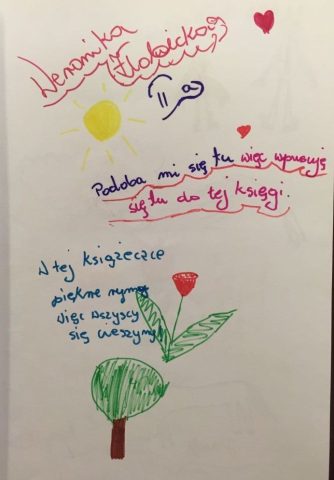 Weronika
IIa
Podoba mi się tu więc wpisuję
się tu do tej księgi.
W tej książeczce
piękne rymy
więc wszyscy
się cieszymy!